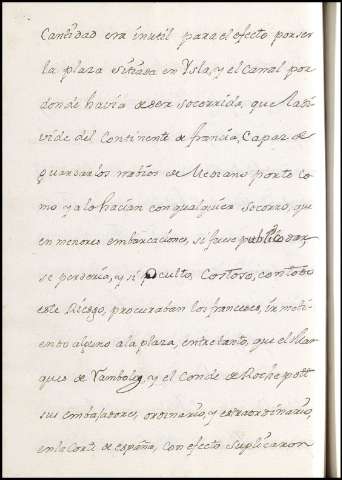 Cantidad era inutil para el efecto por ser
la plaza sitiada en Ysla, y el Canal por
donde havia de ser socorrida, que la di
vide del Continente de francia, Capaz de
guardarlos navios de
mo ya lo hacian con qualquier socorro, que
en menores embarcaciones, si fuese publico
se perderia, y si oculto, Costoso, con todo
este Riesgo, procuraban los franceses, ir meti
endo alguno ala plaza, entre tanto, que el Mar
ques de Rambolly, y el Conde de Rochepott
sus embajadores, ordinario, y extraordinario,
en la Corte de españa, con efecto suplicaron